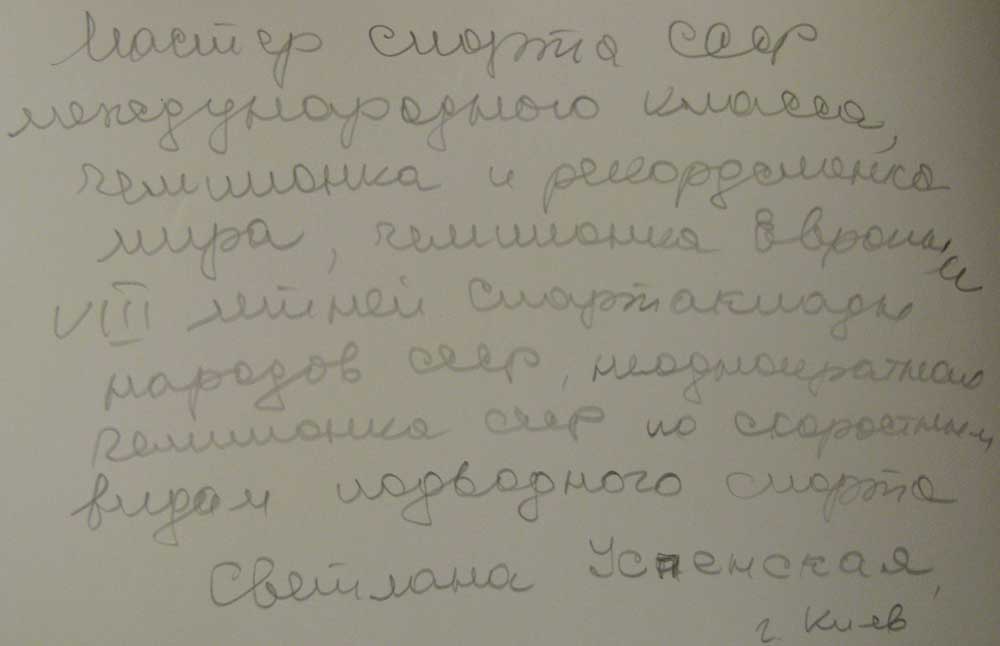 Мастер спорта СССР
международного класса,
чемпионка и рекордсменка
мира, чемпионка Европы и
VIII летней Спартакиады
народов СССР, неоднократная
чемпионка СССР по скоростным
видам подводного спорта
Светлана Успенская,
г. Киев